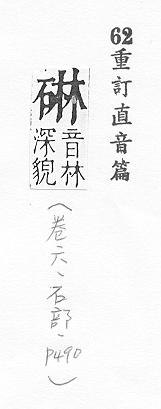 62重訂直音篇
碄
音林
深貌
（卷六、石部、P490）